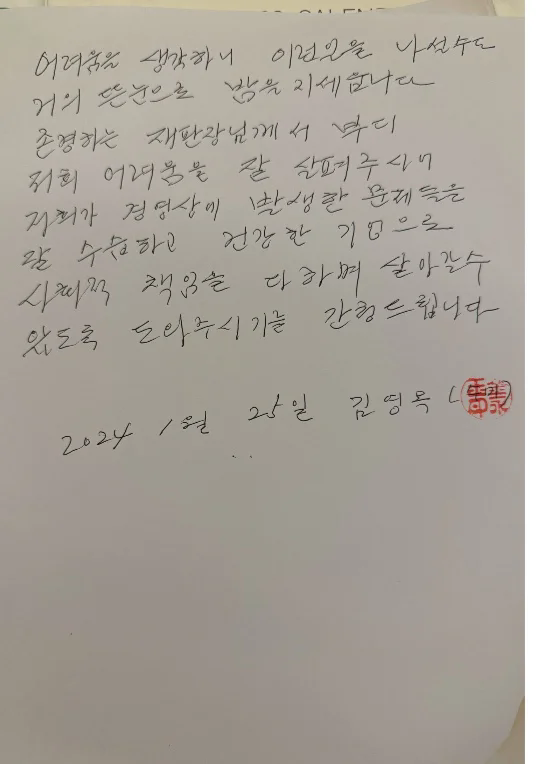 CALEND
어려움을 생각하니 이런 일을 나선수도
거의 뜬눈으로 밤을 지세웁니다
존경하는 재판장님께서 부디
저희 어려움을 잘 살펴주시어
저희가 경영상에 발생한 문제들을
잘 수습하고 건강한 기업으로
사회적 책임을 다하며 살아갈수
있도록 도와주시기를 간청드립니다
2024 1월 25일 김영목 (